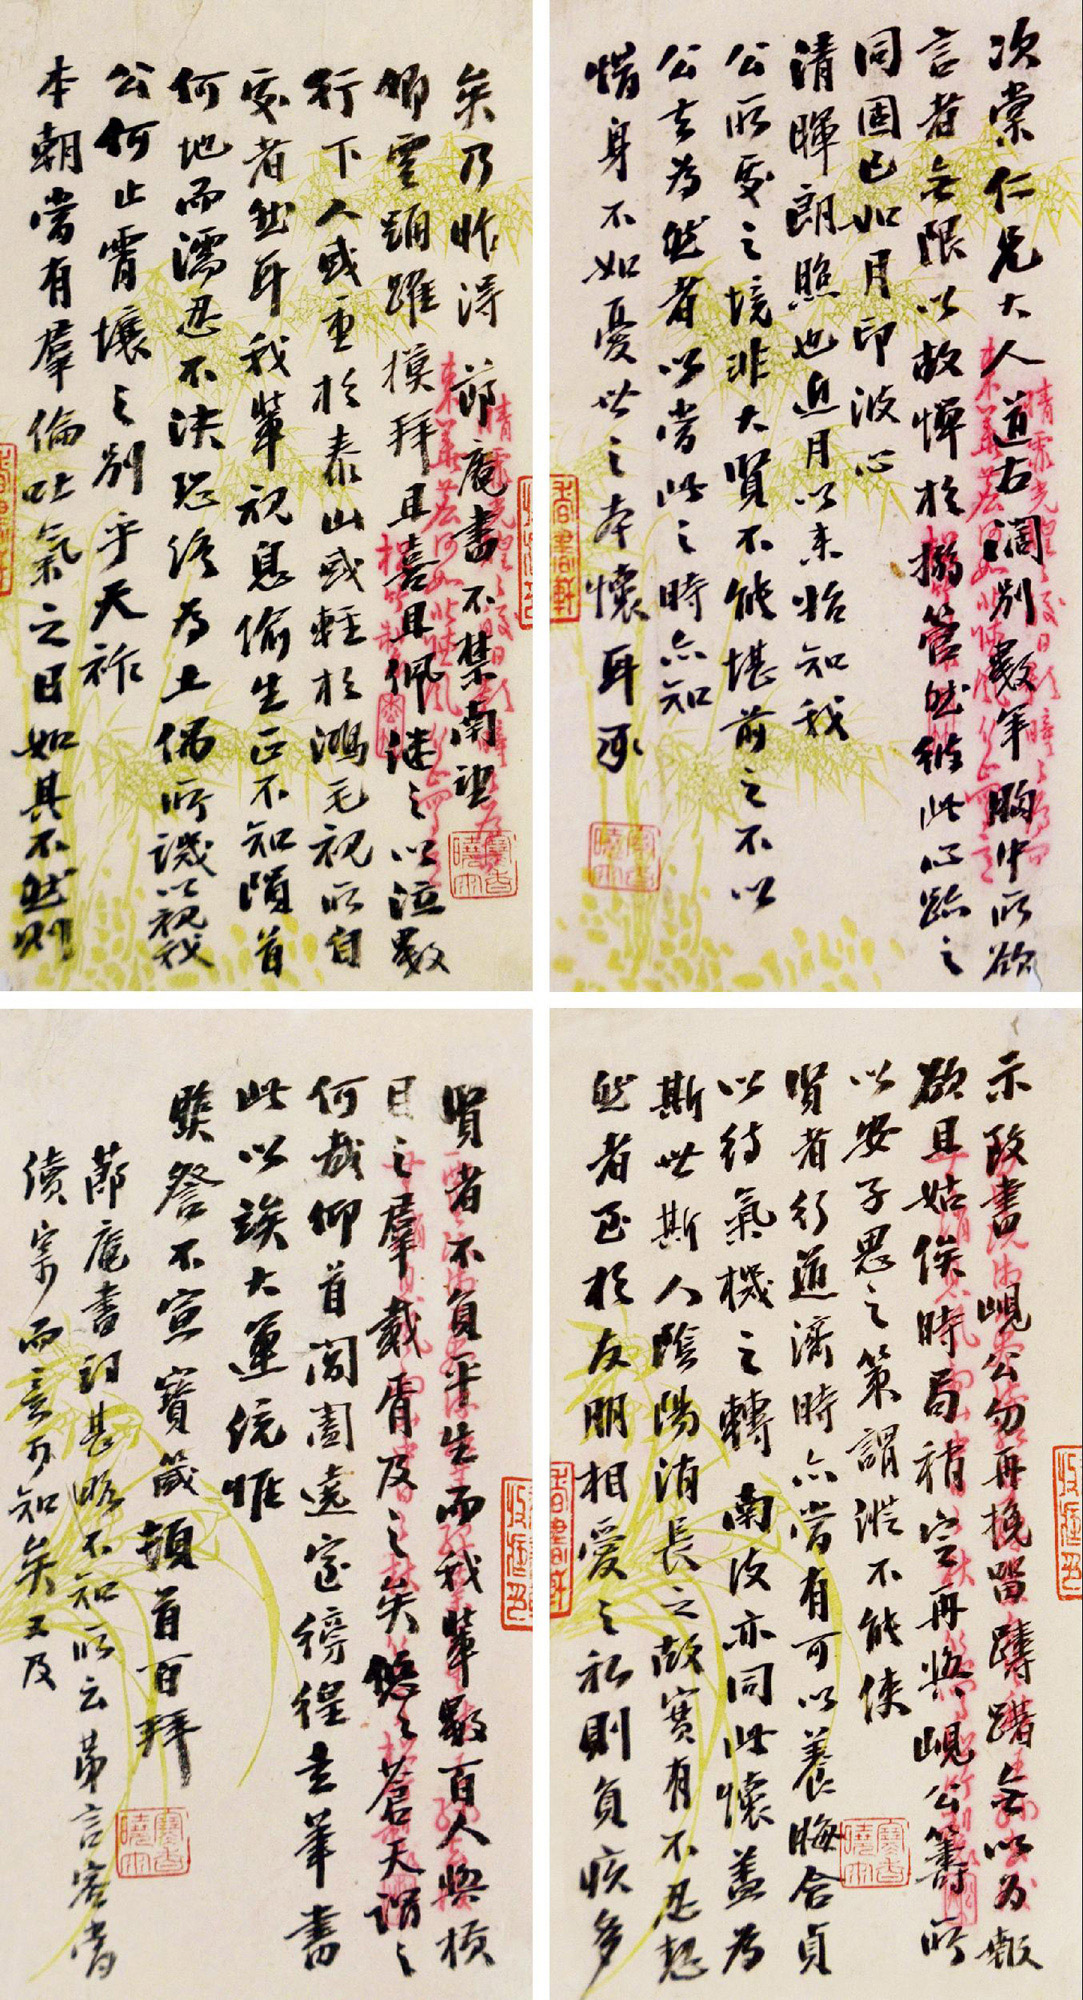 次棠仁兄大人道右闊別數年胸中所欲
言者無限以故憚於搦管然維此心跡之
同固已如月印波心
清暉朗照也近月以來怡知我
公所受之境非大賢不能堪前之不以
公去為然者以當此之時亦知
惜身不如憂世之本懷耳承
示改書峴公勿再挽留躊躇無以為報
欲且姑俟時局稍定再與峴公籌所
以安子思之策謂縱不能使
賢者行道濟時亦當有可以養晦含貞
以待氣機之轉南皮亦同此懷蓋為
斯世斯人陰陽消長之故實有不忍恝
然者至於友朋相愛之私則負疚多
矣乃昨得節庵書不禁南望
卿雲踴躍摸拜且喜且佩繼之以泣數
行下人或重於泰山或輕於鴻毛視所自
處者然耳我輩視息偷生正不知隕首
何地而濡忍不決恐終為土偶所譏以視我
公何止霄壤之別乎天祚
本朝當有羣倫吐氣之日如其不然則
賢者不負平生而我輩數百人與橫
目之羣載胥及之矣悠悠蒼天謂之
何哉仰首閶闔遠室徬徨走筆書
此以竢大運統惟
鑒詧不宣寶箴頓首百拜
節庵書詞甚晦不知所云第言密當
續寄而意可知矣又及